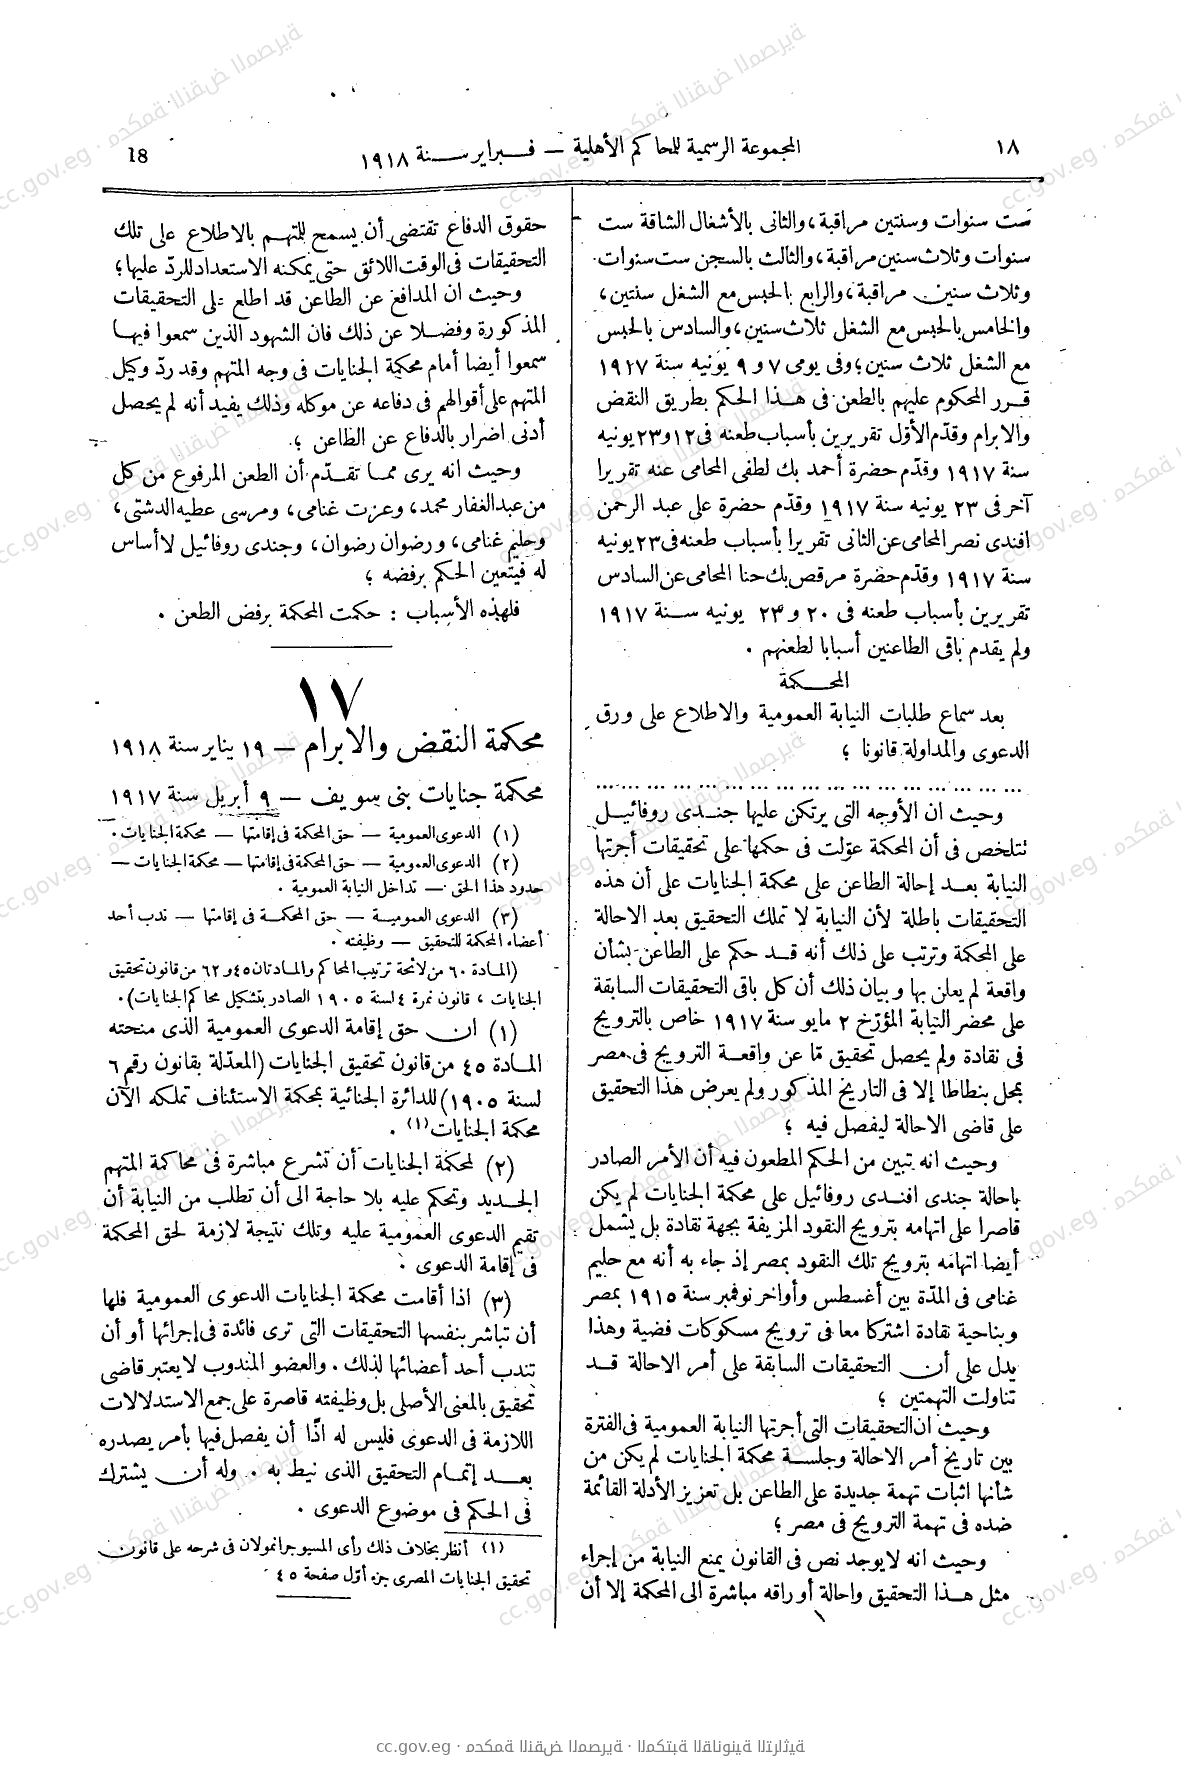 ١٨
المجموعة الرسمية للمحاكم الأهلية — فبراير سنة ١٩١٨
18
ست سنوات وسنتين مراقبة، والثانى بالأشغال الشاقة ست
سنوات وثلاث سنين مراقبة، والثالث بالسجن ست سنوات
وثلاث سنين مراقبة، والرابع بالحبس مع الشغل سنتين،
والخامس بالحبس مع الشغل ثلاث سنين، والسادس بالحبس
مع الشغل ثلاث سنين؛ وفى يومى ٧ و ٩ يونيه سنة ١٩١٧
قرر المحكوم عليهم بالطعن فى هذا الحكم بطريق النقض
والابرام وقدّم الأول تقريرين بأسباب طعنه فى ١٢ و٢٣ يونيه
سنة ١٩١٧ وقدّم حضرة أحمد بك لطفى المحامى عنه تقريرا
آخر فى ٢٣ يونيه سنة ١٩١٧ وقدّم حضرة على عبد الرحمن
افندى نصر المحامى عن الثانى تقريرا بأسباب طعنه فى ٢٣ يونيه
سنة ١٩١٧ وقدّم حضرة مرقص بك حنا المحامى عن السادس
تقريرين بأسباب طعنه فى ٢٠ و ٢٣ يونيه سنة ١٩١٧
ولم يقدم باقى الطاعنين أسبابا لطعنهم .
المحكمة
بعد سماع طلبات النيابة العمومية والاطلاع على ورق
الدعوى والمداولة قانونا ؛
... ... ... ... ... ... ... ... ... ... ... ... ...
وحيث ان الأوجه التى يرتكن عليها جندى روفائيل
تتلخص فى أن المحكمة عوّلت فى حكمها على تحقيقات أجرتها
النيابة بعد إحالة الطاعن على محكمة الجنايات على أن هذه
التحقيقات باطلة لأن النيابة لا تملك التحقيق بعد الاحالة
على المحكمة وترتب على ذلك أنه قد حكم على الطاعن بشأن
واقعة لم يعلن بها وبيان ذلك أن كل باقى التحقيقات السابقة
على محضر النيابة المؤرّخ ٢ مايو سنة ١٩١٧ خاص بالترويج
فى نقادة ولم يحصل تحقيق مّا عن واقعة الترويج فى مصر
بمحل بنطاطا إلا فى التاريخ المذكور ولم يعرض هذا التحقيق
على قاضى الاحالة ليفصل فيه ؛
وحيث انه تبين من الحكم المطعون فيه أن الأمر الصادر
باحالة جندى افندى روفائيل على محكمة الجنايات لم يكن
قاصرا على اتهامه بترويج النقود المزيفة بجهة نقادة بل يشمل
أيضا اتهامه بترويج تلك النقود بمصر إذ جاء به أنه مع حليم
غنامى فى المدّة بين أغسطس وأواخر نوفمبر سنة ١٩١٥ بمصر
وبناحية نقادة اشتركا معا فى ترويج مسكوكات فضية وهذا
يدل على أن التحقيقات السابقة على أمر الاحالة قد
تناولت التهمتين ؛
وحيث ان التحقيقات التى أجرتها النيابة العمومية فى الفترة
بين تاريخ أمر الاحالة وجلسة محكمة الجنايات لم يكن من
شأنها اثبات تهمة جديدة على الطاعن بل تعزيز الأدلة القائمة
ضده فى تهمة الترويج فى مصر ؛
وحيث انه لا يوجد نص فى القانون يمنع النيابة من إجراء
مثل هذا التحقيق واحالة أوراقه مباشرة الى المحكمة إلا أن
حقوق الدفاع تقتضى أن يسمح للمتهم بالاطلاع على تلك
التحقيقات فى الوقت اللائق حتى يمكنه الاستعداد للردّ عليها؛
وحيث ان المدافع عن الطاعن قد اطلع على التحقيقات
المذكورة وفضلا عن ذلك فان الشهود الذين سمعوا فيها
سمعوا أيضا أمام محكمة الجنايات فى وجه المتهم وقد ردّ وكيل
المتهم على أقوالهم فى دفاعه عن موكله وذلك يفيد أنه لم يحصل
أدنى اضرار بالدفاع عن الطاعن ؛
وحيث انه يرى مما تقدّم أن الطعن المرفوع من كل
من عبد الغفار محمد، وعزت غنامى، ومرسى عطيه الدشتى،
وحليم غنامى، ورضوان رضوان، وجندى روفائيل لا أساس
له فيتعين الحكم برفضه ؛
فلهذه الأسباب : حكمت المحكمة برفض الطعن .
١٧
محكمة النقض والابرام — ١٩ يناير سنة ١٩١٨
محكمة جنايات بنى سويف — ٩ أبريل سنة ١٩١٧
(١) الدعوى العمومية — حق المحكمة فى إقامتها — محكمة الجنايات .
(٢) الدعوى العمومية — حق المحكمة فى إقامتها — محكمة الجنايات —
حدود هذا الحق — تداخل النيابة العمومية .
(٣) الدعوى العمومية — حق المحكمة فى إقامتها — ندب أحد
أعضاء المحكمة للتحقيق — وظيفته .
(المادة ٦٠ من لائحة ترتيب المحاكم والمادتان ٤٥ و ٦٢ من قانون تحقيق
الجنايات ، قانون نمرة ٤ لسنة ١٩٠٥ الصادر بتشكيل محاكم الجنايات) .
(١) ان حق إقامة الدعوى العمومية الذى منحته
المادة ٤٥ من قانون تحقيق الجنايات (المعدّلة بقانون رقم ٦
لسنة ١٩٠٥) للدائرة الجنائية بمحكمة الاستئناف تملكه الآن
محكمة الجنايات(١) .
(٢) لمحكمة الجنايات أن تشرع مباشرة فى محاكمة المتهم
الجديد وتحكم عليه بلا حاجة الى أن تطلب من النيابة أن
تقيم الدعوى العمومية عليه وتلك نتيجة لازمة لحق المحكمة
فى إقامة الدعوى .
(٣) اذا أقامت محكمة الجنايات الدعوى العمومية فلها
أن تباشر بنفسها التحقيقات التى ترى فائدة فى إجرائها أو أن
تندب أحد أعضائها لذلك . والعضو المندوب لا يعتبر قاضى
تحقيق بالمعنى الأصلى بل وظيفته قاصرة على جمع الاستدلالات
اللازمة فى الدعوى فليس له اذًا أن يفصل فيها بأمر يصدره
بعد إتمام التحقيق الذى نيط به . وله أن يشترك
فى الحكم فى موضوع الدعوى .
(١) أنظر بخلاف ذلك رأى المسيو جرانمولان فى شرحه على قانون
تحقيق الجنايات المصرى جزء أوّل صفحة ٤٥
cc.gov.eg · محكمة النقض المصرية · المكتبة القانونية التراثية